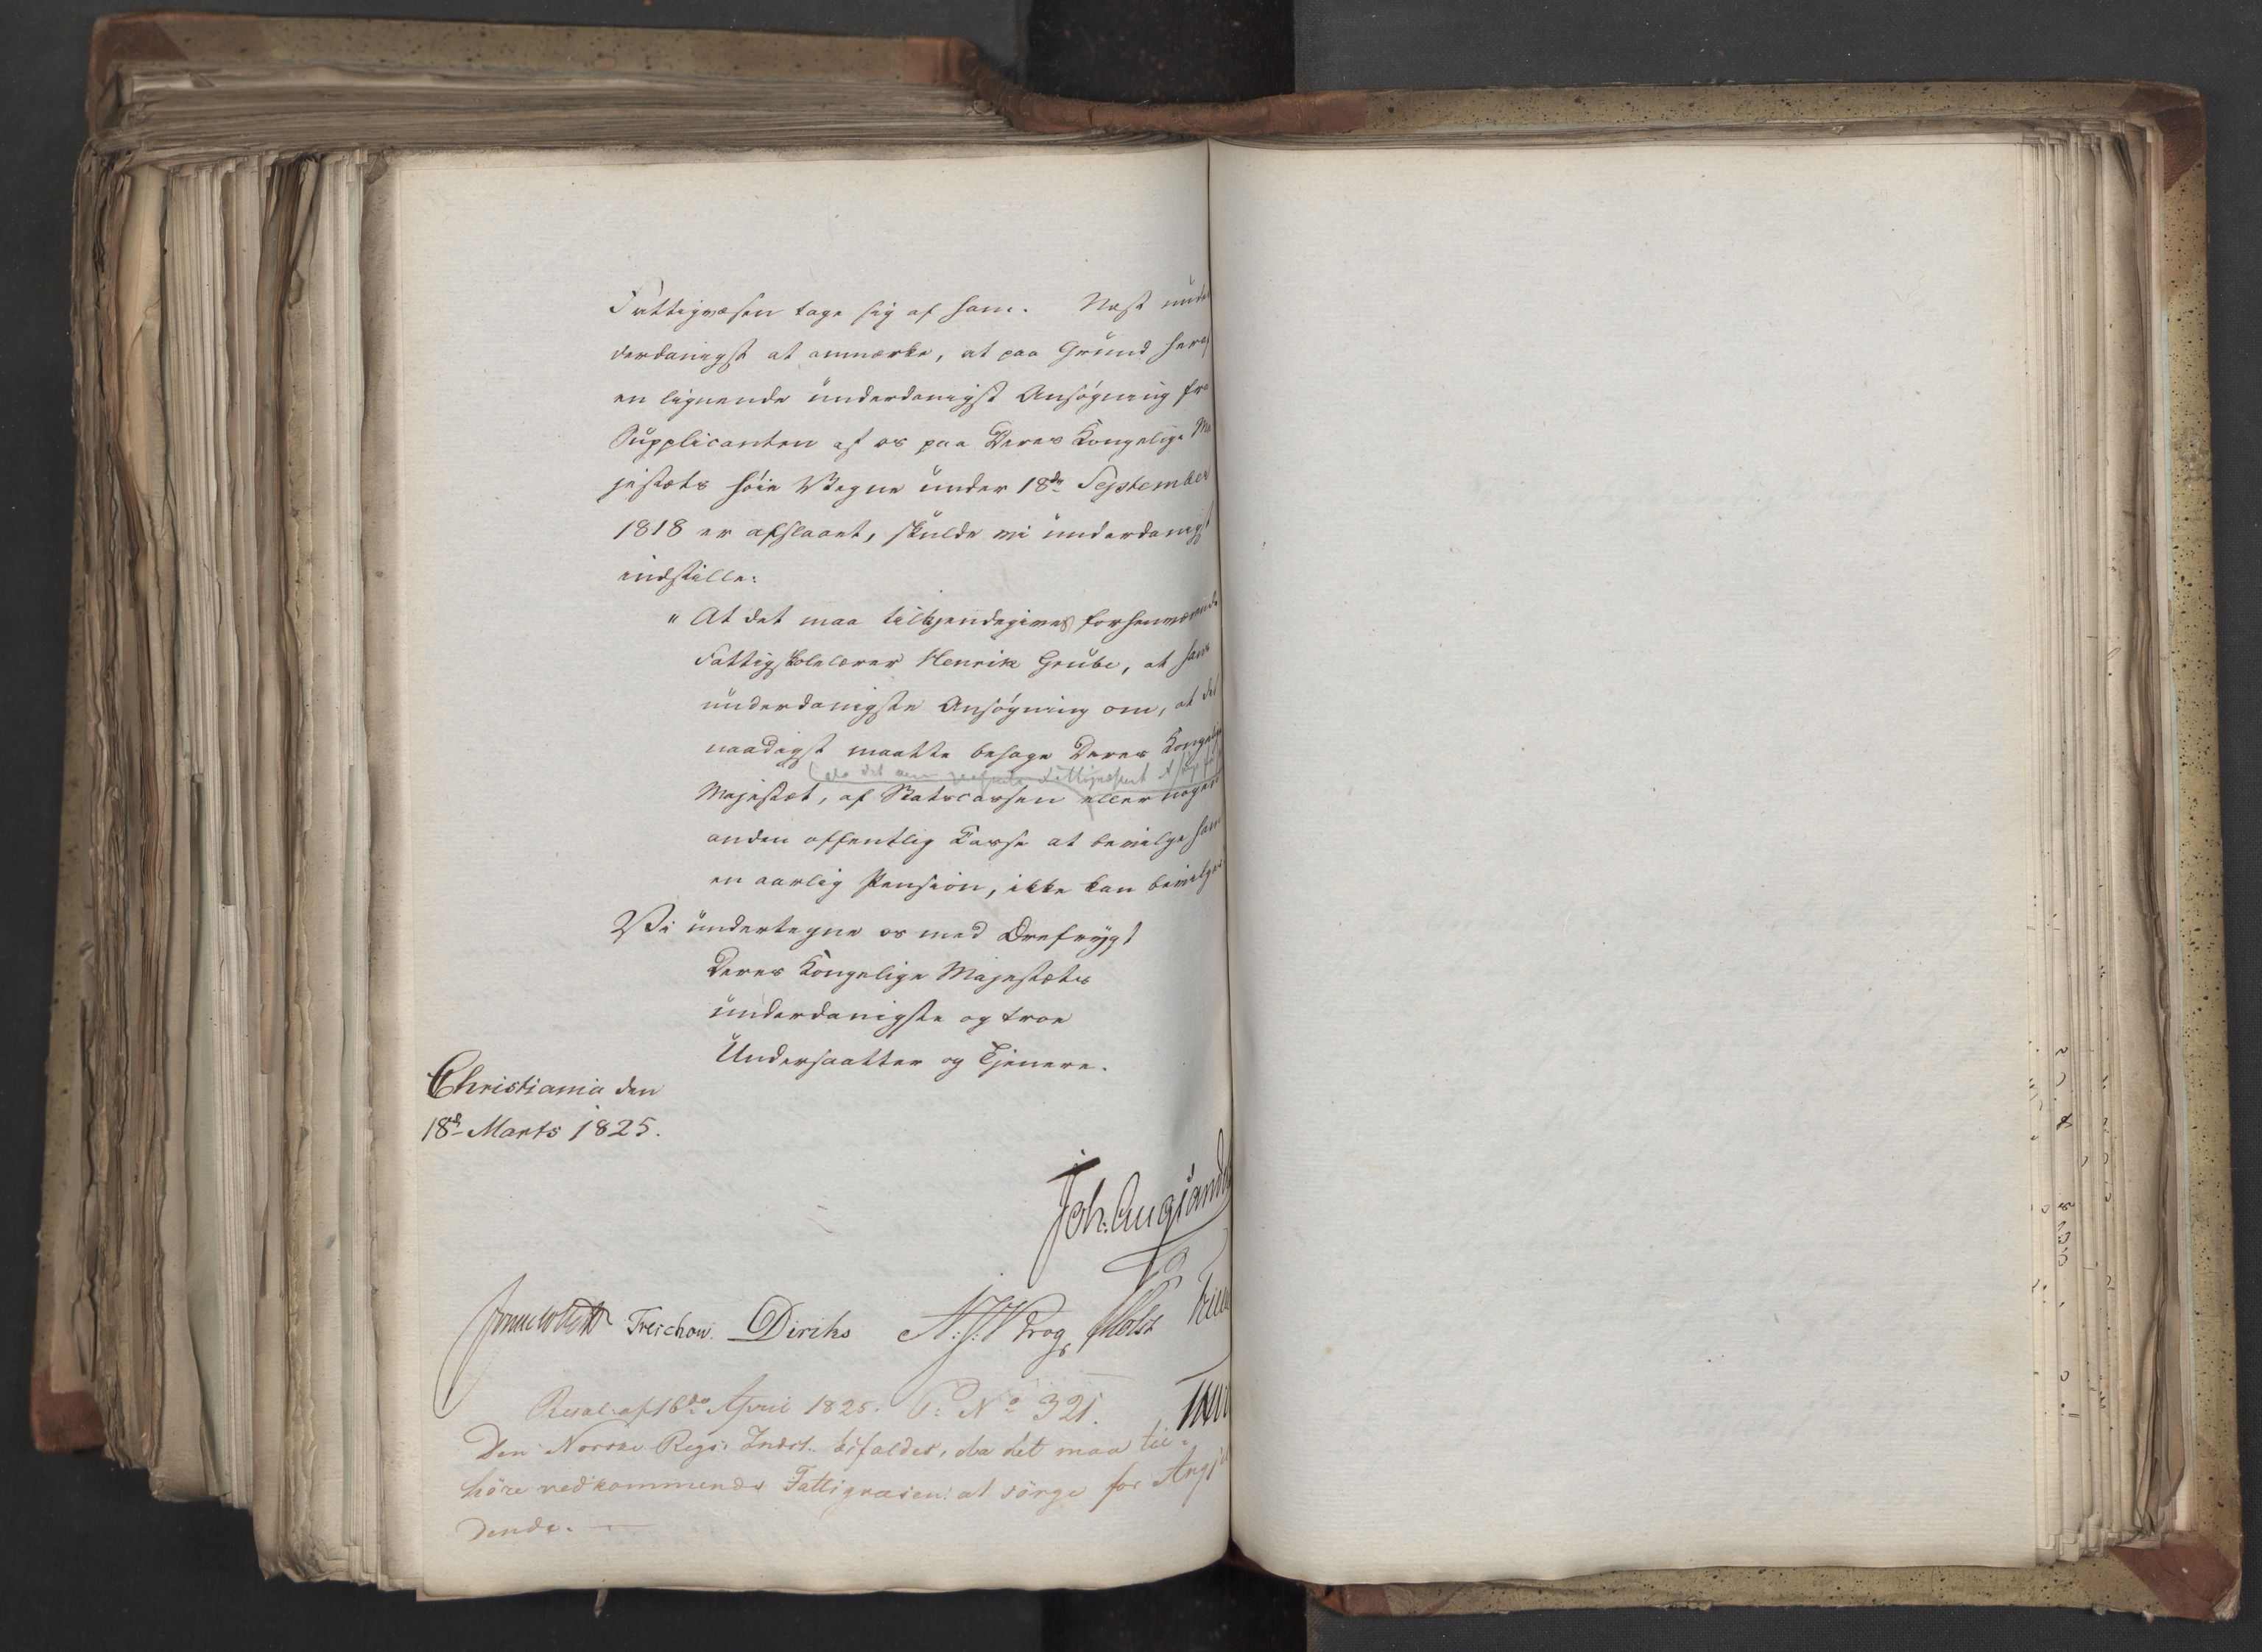 Fattigvæsen tage sig af ham. Næst unde
derdanigst at anmærke, at paa Grund heraf
en lignende underdanigst Ansøgning fra
Supplicanten af os paa Deres Kongelige Ma
jestæts høie Vegne under 18de September
1818 er afslaaet, skulde vi underdanigst
indstille:
"At det maa tilkjendegives forhenværende
Fattigskolelærer Henrik Grube, at hans
underdanigste Ansøgning om, at det
naadigst maatte behage Deres Kongelige
Majestæt, af Statscassen eller nogen
anden offentlig Casse at bevilge ham
en aarlig Pension, ikke kan bevilges
Vi undertegne os med Ærefrygt
Deres Kongelige Majestæts
underdanigste og troe
Undersaatter og Tjenere.
Christiania den
18d Marts 1825.
Joh: Aug: Sande
Treschow. Diriks Holst
Resol: af 16de April 1825. P: No 321.
Den Norske Regs: Indst. bifaldes, da det maa til-
höre vedkommende Fattigvæsen at sörge for Angjæl
dende.